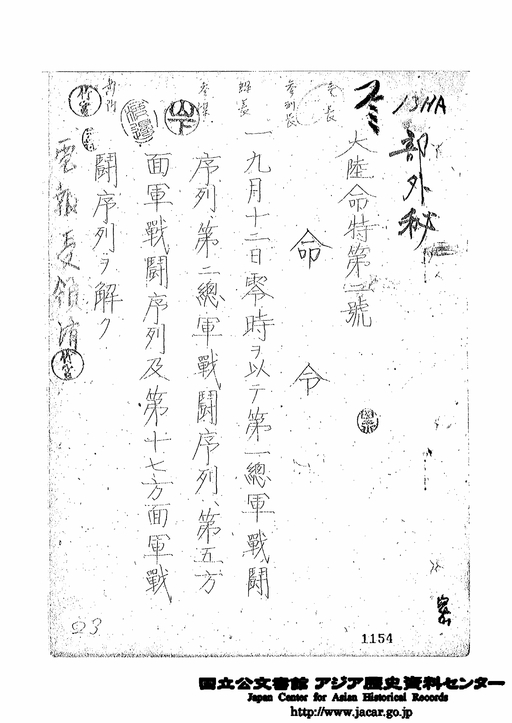 13HA
部外秘
大陸命特第一號
命令
一 九月十二日零時ヲ以テ第一總軍戰鬪
序列、第二總軍戰鬪序列、第五方
面軍戰鬪序列及第十七方面軍戰
鬪序列ヲ解ク
電報受領済
竹宮
山下
課長
23
1154
国立公文書館 アジア歴史資料センター
Japan Center for Asian Historical Records
http://www.jacar.go.jp